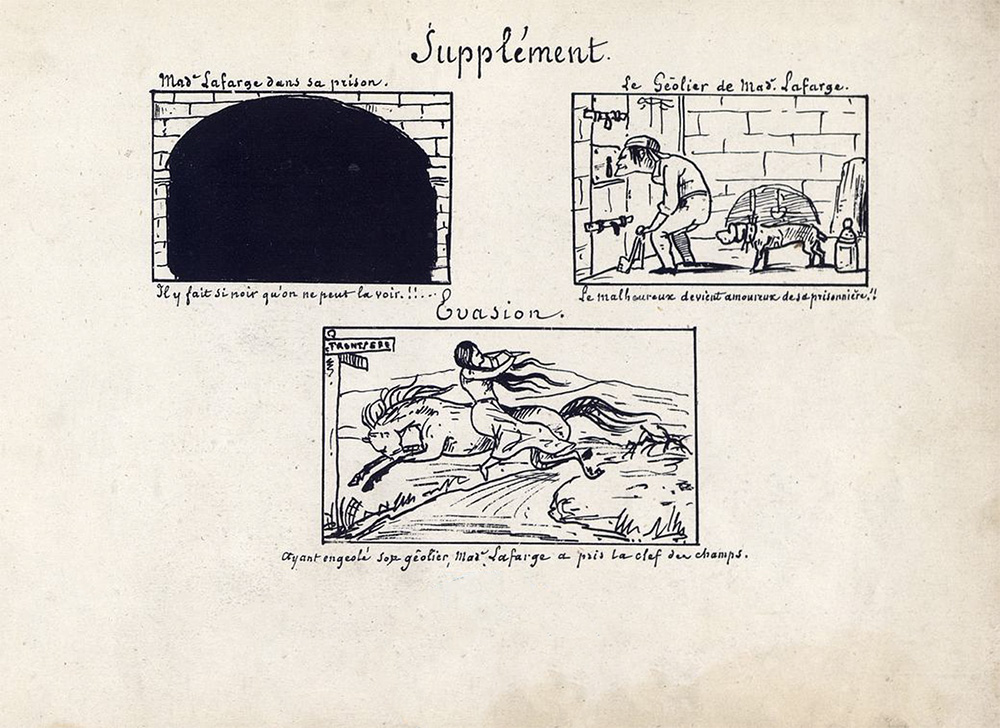 Supplément.
Made Lafarge dans sa prison.
Le Géolier de Made. Lafarge.
Il y fait si noir qu'on ne peut la voir.!!...
Le malheureux devient amoureux de sa prisonnière!!
Evasion.
FRONTIERE
Ayant engeolé son géolier, Made. Lafarge a pris la clef des champs.